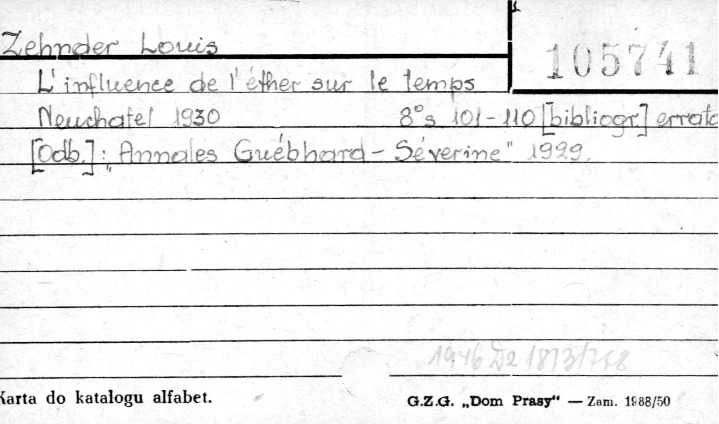 Zehnder Louis
105741
L'influence de l'éther sur le temps
Neuchatel 1930 8°s 101-110 [bibliogr.] errata
[Odb.]: „Annales Guébhard-Séverine" 1929.
1946
Karta do katalogu alfabet. G.Z.G. „Dom Prasy" — Zam. 1988/50